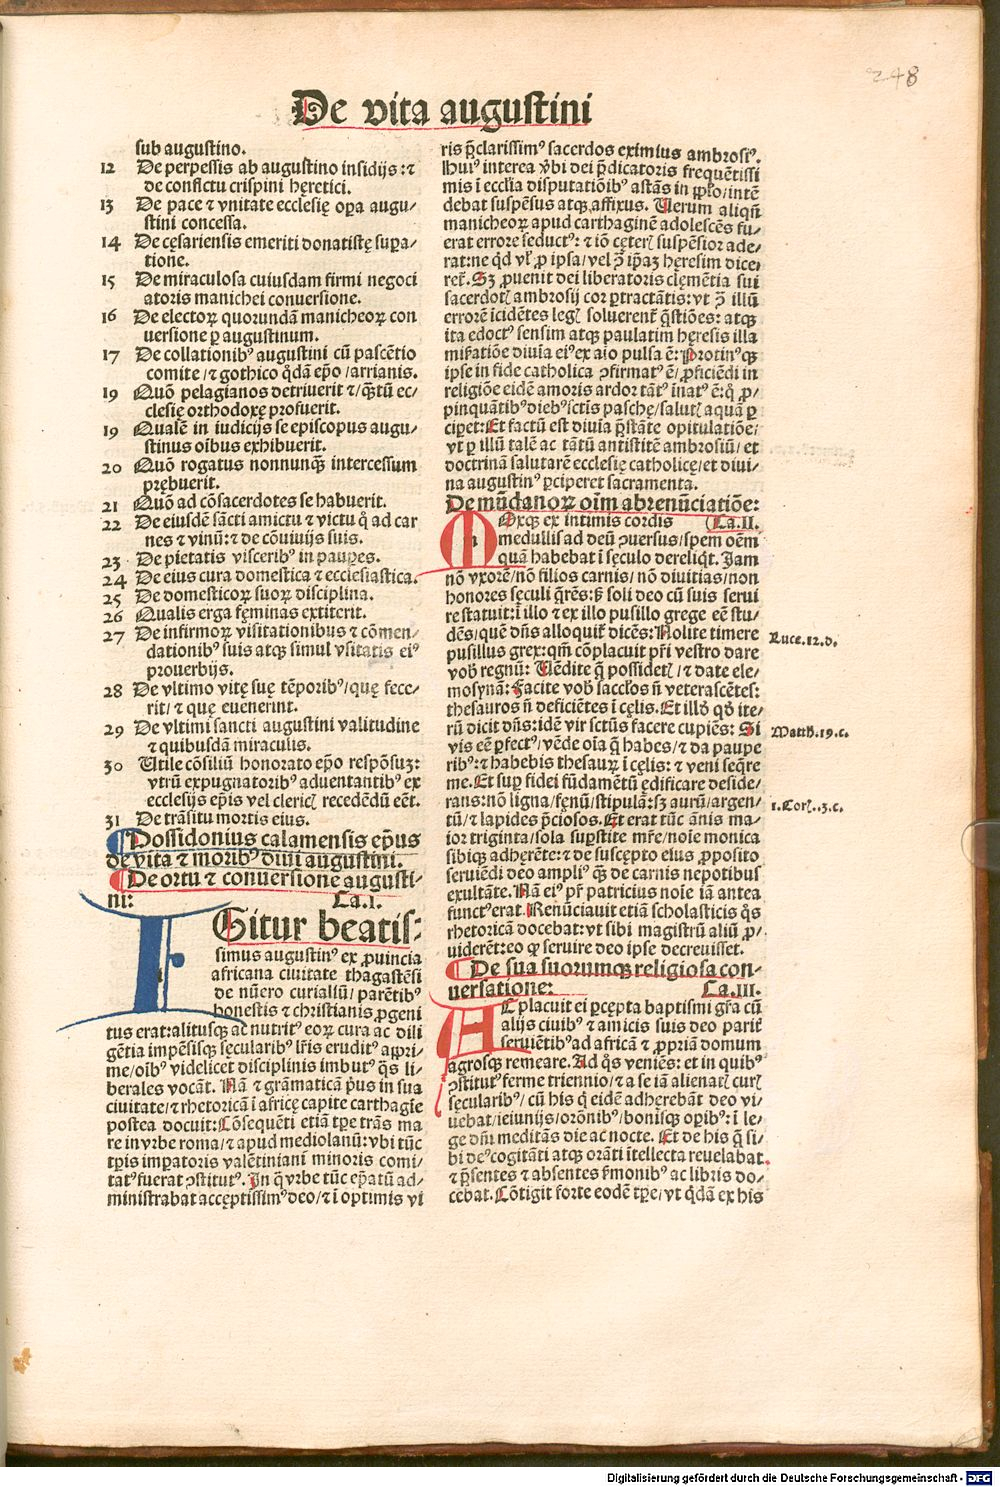 248
De vita augustini
sub augustino.
12 De perpessis ab augustino insidijs: ⁊
de conflictu crispini hęretici.
13 De pace ⁊ vnitate ecclesię oꝑa augu/
stini concessa.
14 De cęsariensis emeriti donatistę suꝑa/
tione.
15 De miraculosa cuiusdam firmi negoci
atoris manichei conuersione.
16 De electoꝝ quorundā manicheoꝝ con
uersione ꝑ augustinum.
17 De collationibꝰ augustini cū pascētio
comite/⁊ gothico q̇dā ep̄o/arrianis.
19 Quō pelagianos detriuerit ⁊/q̄ȝtū ec/
clesię orthodoxę profuerit.
19 Qualē in iudicijs se episcopus augu/
stinus oībus exhibuerit.
20 Quō rogatus nonnunq̄ȝ intercessum
prębuerit.
21 Quō ad cōsacerdotes se habuerit.
22 De eiusdē sācti amictu ⁊ victu q̇ ad car
nes ⁊ vinū: ⁊ de cōuiuijs suis.
23 De pietatis visceribꝰ in pauꝑes.
24 De eius cura domestica ⁊ ecclesiastica.
25 De domesticoꝝ suoꝝ disciplina.
26 Qualis erga fęminas extiterit.
27 De infirmoꝝ visitationibus ⁊ cōmen/
dationibꝰ suis atqꝫ simul vsitatis eiꝰ
prouerbijs.
28 De vltimo vitę suę tēporibꝰ/quę fece/
rit/⁊ quę euenerint.
29 De vltimi sancti augustini valitudine
⁊ quibusdā miraculis.
30 Utile cōsiliū honorato ep̄o respōsuȝ:
vtrū expugnatoribꝰ aduentantibꝰ ex
ecclesijs ep̄is vel clericꝭ recedēdū eēt.
31 De trāsitu mortis eius.
¶ Possidonius calamensis ep̄us
de vita ⁊ moribꝰ diui augustini.
¶ De ortu ⁊ conuersione augusti-
ni: Ca.I.
IGitur beatis:
simus augustinꝰ ex ꝓuincia
africana ciuitate thagastēsi
de nūero curialiū/parētibꝰ
honestis ⁊ christianis ꝓgeni
tus erat:alitusqꝫ ac nutritꝰ eoꝝ cura ac dili
gētia impēsisqꝫ sęcularibꝰ lr̄is eruditꝰ apṗri/
me/oībꝰ videlicet disciplinis imbutꝰ q̄s li/
berales vocāt. Nā ⁊ grāmaticā p̄us in sua
ciuitate/⁊ rhetoricā ī africę capite carthagīe
postea docuit: Cōsequēti etiā tꝑe trās ma
re in vrbe roma/⁊ apud mediolanū: vbi tūc
tꝑis imꝑatoris valētiniani minoris comi/
tatꝰ fuerat ꝯstitutꝰ. In q̄ vrbe tūc ep̄atū ad/
ministrabat accęptissimꝰ deo/⁊ ī optimis vi
ris p̄clarissimꝰ sacerdos eximius ambrosiꝰ.
Huiꝰ interea v̄bi dei p̄dicatoris frequētissi
mis ī eccl̄ia disputatiōibꝰ astās in ꝑpl̄o/intē
debat suspēsus atqꝫ affixus. Uerum aliqn̄
manicheoꝝ apud carthaginē adolescēs fu/
erat errore seductꝰ: ⁊ iō cęterꝭ suspēsior ade/
rat: ne q̇d vl̄ ꝓ ipsa/vel ꝯ ip̄aȝ hęresim dice/
ret̄. Sȝ ꝓuenit dei liberatoris clęmētia sui
sacerdotꝭ ambrosij cor ꝑtractātis: vt ꝯ illū
errorē icidētes legꝭ soluerent̄ q̄stiōes: atqꝫ
ita edoctꝰ sensim atqꝫ paulatim hęresis illa
mis̄atiōe diuīa eiꝰ ex aīo pulsa ē: Protinꝰqꝫ
ipse in fide catholica ꝯfirmatꝰ ē/ꝓficiēdi in
religiōe eidē amoris ardor tātꝰ inatꝰ ē: q̄ ꝓ/
pinquātibꝰ diebꝰ sctis paschę/salutꝭ aquā ꝑ
ciꝑet: Et factū est diuīa p̄stāte opitulatiōe/
vt ꝑ illū talē ac tātū antistitē ambrosiū/et
doctrinā salutarē ecclesię catholicę/et diui/
na augustinꝰ ꝑciperet sacramenta.
De mūdanoꝝ oīm abrenūciatiōe:
MOxqꝫ ex intimis cordis (Ca.II.
medullis ad deū ꝯuersus/spem oēm
quā habebat ī sęculo dereliq̇t. Iam
nō vxorē/nō filios carnis/nō diuitias/non
honores sęculi q̄rēs: s̄ꝫ soli deo cū suis serui
re statuit: ī illo ⁊ ex illo pusillo grege eē stu/
dēs/quē dn̄s alloquit̄ dicēs: Nolite timere
pusillus grex: qm̄ cōplacuit pr̄i vestro dare
vobꝭ regnū: Uēdite q̄ possidetꝭ/⁊ date ele/
mosynā: Facite vobꝭ saccl̄os n̄ veterascētes:
thesauros n̄ deficiētes ī cęlis. Et illd̄ qd̄ ite/
rū dicit dn̄s: idē vir sctūs facere cupiēs: Si
vis eē ꝑfectꝰ/vēde oīa q̄ habes/⁊ da paupe
ribꝰ: ⁊ habebis thesauꝝ ī cęlis: ⁊ veni seq̄re
me. Et suꝑ fidei fūdamētū ędificare deside/
rans: nō ligna/fęnū/stipulā: sȝ aurū/argen/
tū/⁊ lapides p̄ciosos. Et erat tūc ānis ma/
ior triginta/sola suꝑstite mr̄e/noīe monica
sibiqꝫ adhęrēte: ⁊ de suscępto eius ꝓposito
seruiēdi deo ampliꝰ q̄ȝ de carnis nepotibus
exultāte. Nā eiꝰ pr̄ patricius noīe iā antea
functꝰ erat. Renūciauit etiā scholasticis q̄s
rhetoricā docebat: vt sibi magistrū aliū ꝓ/
uiderēt: eo ꝙ seruire deo ipse decreuisset.
¶ De sua suorumqꝫ religiosa con-
uersatione: Ca.III.
AC placuit ei ꝑcępta baptismi gr̄a cū
alijs ciuibꝰ ⁊ amicis suis deo parit̄
seruiētibꝰ ad africā ⁊ ꝓpriā domum
agrosqꝫ remeare. Ad q̄s veniēs: et in quibꝰ
ꝯstitutꝰ ferme triennio/⁊ a se iā alienatꝭ curꝭ
sęcularibꝰ/cū his q̇ eidē adherebāt deo vi/
uebat/ieiunijs/orōnibꝰ/bonisqꝫ oꝑibꝰ: ī le/
ge dn̄i meditās die ac nocte. Et de his q̄ si/
bi deꝰ cogitāti atqꝫ orāti itellecta reuelabat.
⁊ p̄sentes ⁊ absentes s̄monibꝰ ac libris do/
cebat. Cōtigit forte eodē tꝑe/vt q̇dā ex his
Luce.12.d.
Matth.19.c.
1.Corꝭ.3.c.
Digitalisierung gefördert durch die Deutsche Forschungsgemeinschaft - DFG